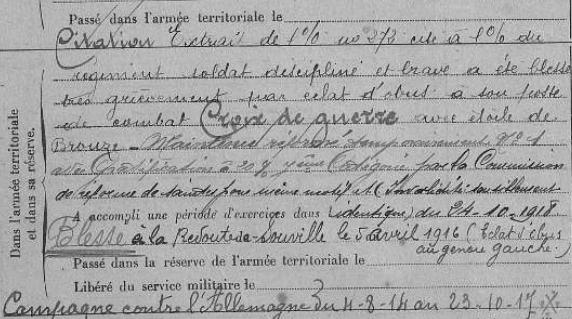 Passé dans l'armée territoriale le
Citation Extrait de l'O/ no 273 cité à l'O/ du
régiment soldat discipliné et brave a été blessé
très grièvement par éclat d'obus à son poste
de combat Croix de guerre avec étoile de
Bronze - Maintenu réformé temporairement No 1
avec Gratification à 20% 7eme catégorie par la Commission
de réforme de pour même motif et (Invalidité
A accompli une période d'exercices dans identique) du 24-10-1918
Blessé à la Redoute de Souville le 5 avril 1916 (Eclat d'obus
au genou gauche.)
Passé dans la réserve de l'armée territoriale le
Libéré du service militaire le
Campagne contre l'Allemagne du 4-8-14 au 23-10-17
Dans l'armée territoriale
et dans sa réserve.